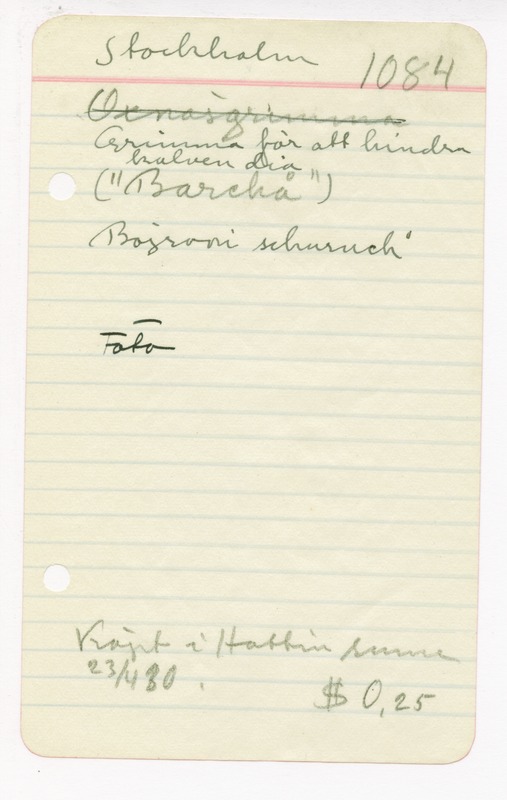 Stockholm 1084
Oxnosgrimma
Grimma för att hindra
kalven dia
("Barchå")
Bozrooi schuruch'
Foto
Köpt i Hattin sume
23/4 30. $ 0,25